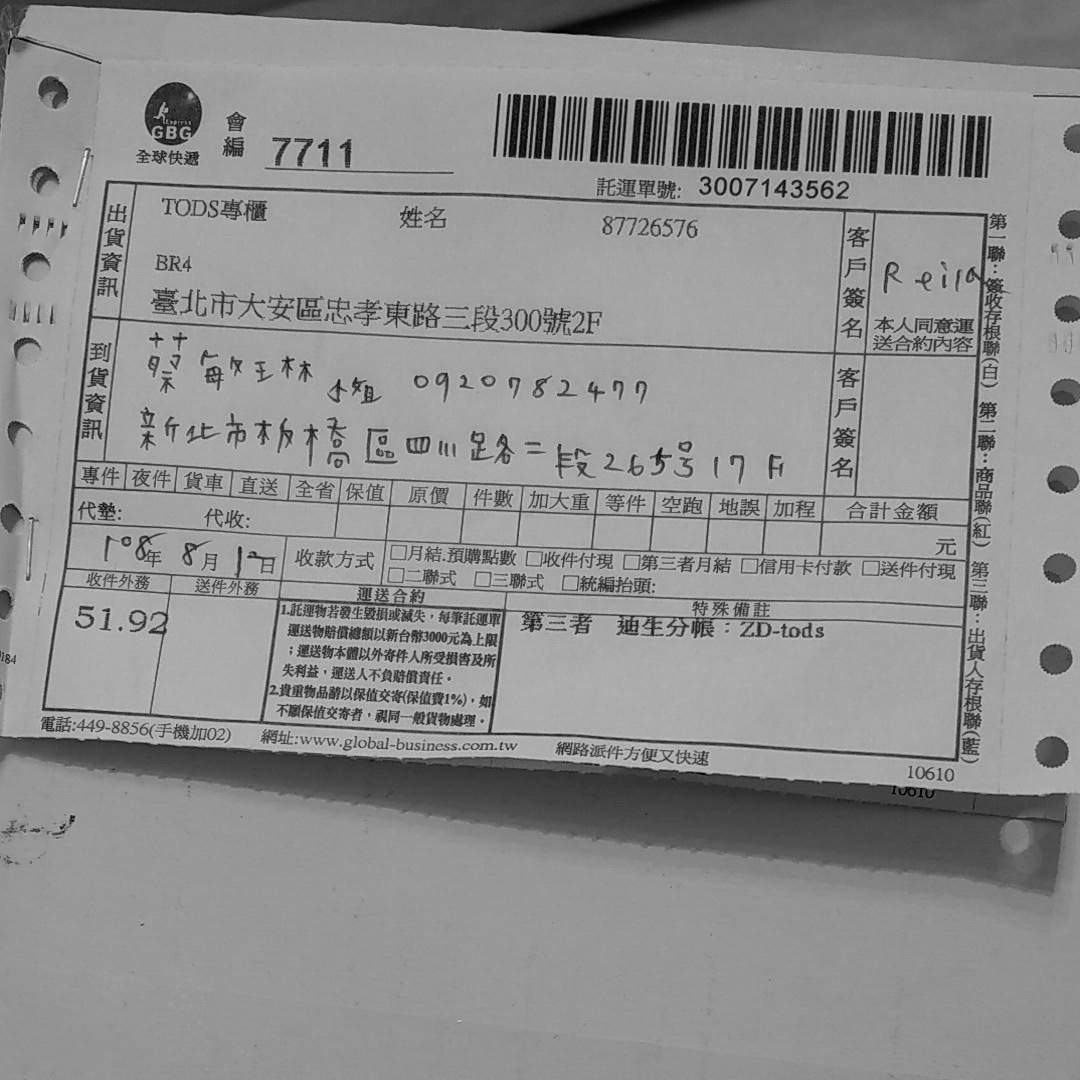 Express
GBG
全球快遞
會編 7711
託運單號: 3007143562
出貨資訊
TODS專櫃 姓名 87726576
BR4
臺北市大安區忠孝東路三段300號2F
客戶簽名
Reila
本人同意運
送合約內容
到貨資訊
蔡敏琳 小姐 0920782477
新北市板橋區四川路二段265号17F
客戶簽名
專件 夜件 貨車 直送 全省 保值 原價 件數 加大重 等件 空跑 地誤 加程 合計金額
代墊: 代收: 元
108年 8月 12日 收款方式 □月結.預購點數 □收件付現 □第三者月結 □信用卡付款 □送件付現
□二聯式 □三聯式 □統編抬頭:
收件外務 送件外務 運送合約 特殊備註
51.92
1.託運物若發生毀損或滅失，每筆託運單
運送物賠償總額以新台幣3000元為上限
；運送物本體以外寄件人所受損害及所
失利益，運送人不負賠償責任。
2.貴重物品請以保值交寄(保值費1%)，如
不願保值交寄者，視同一般貨物處理。
第三者 迪生分帳：ZD-tods
第一聯：簽收存根聯(白) 第二聯：商品聯(紅) 第三聯：出貨人存根聯(藍)
電話:449-8856(手機加02) 網址:www.global-business.com.tw 網路派件方便又快速
10610
10610